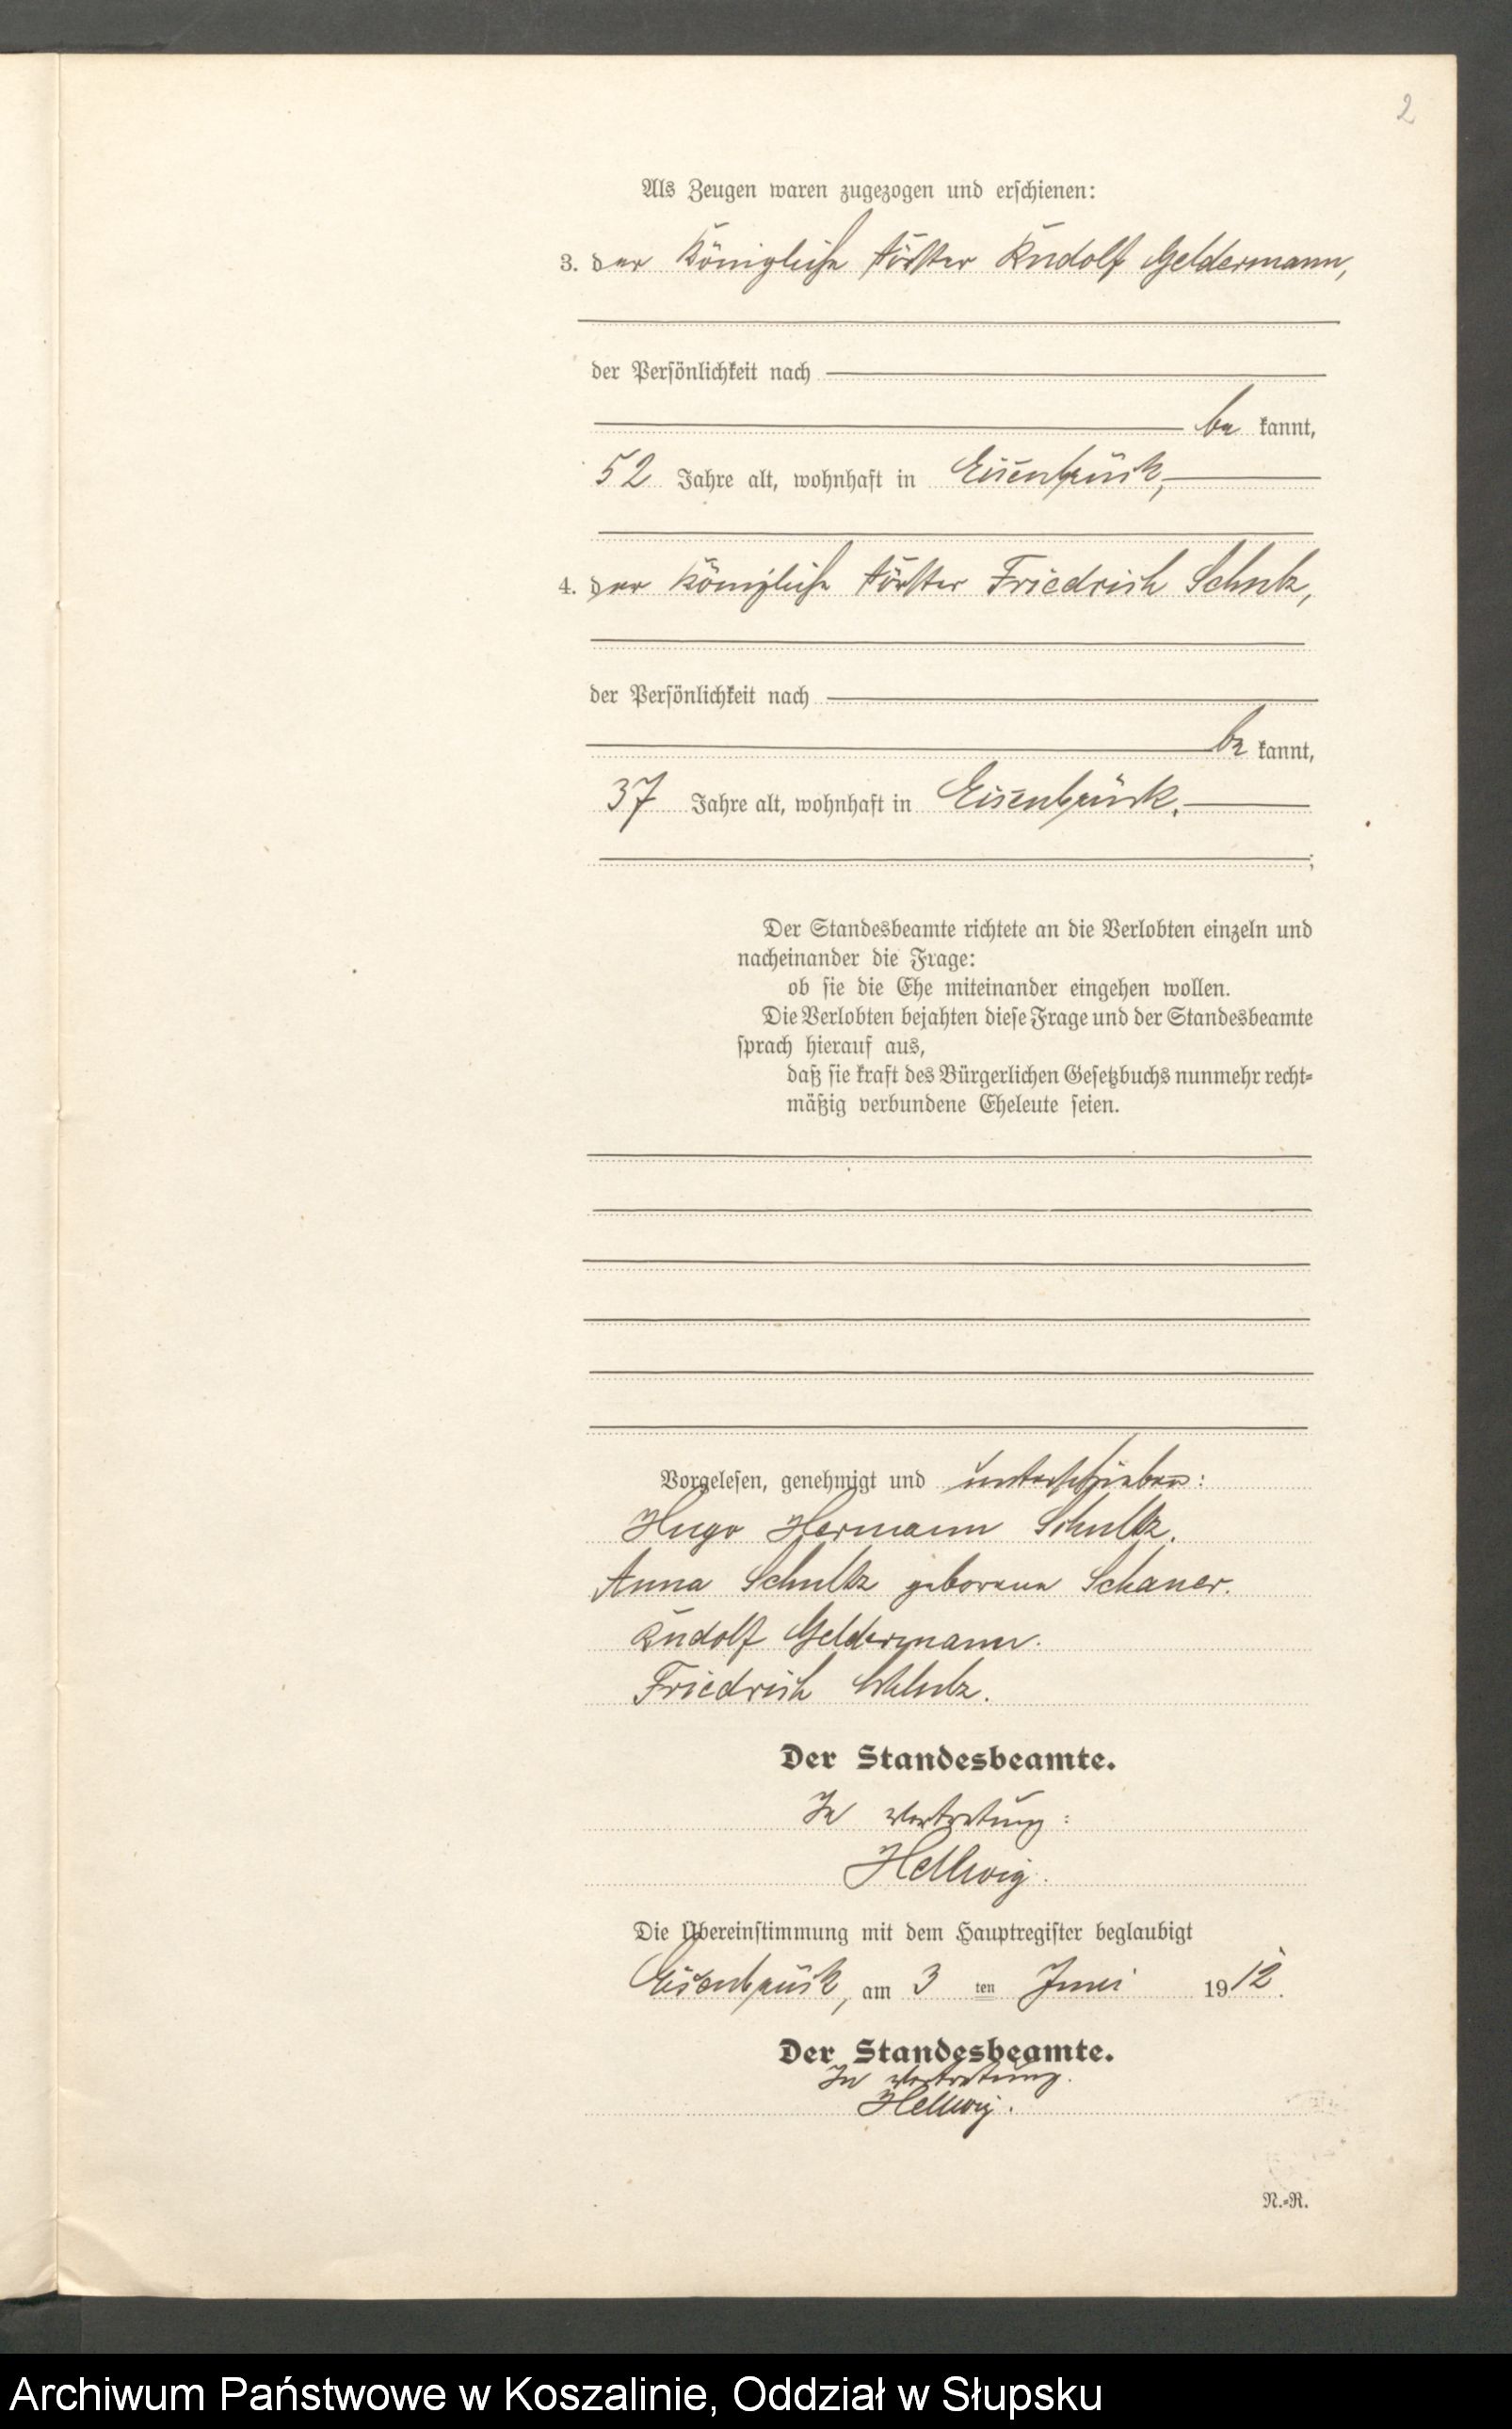 2
Als Zeugen waren zugezogen und erschienen:
3. der Königliche Förster Rudolf Geldermann,
der Persönlichkeit nach
be kannt,
52 Jahre alt, wohnhaft in Eisenbrück,
4. der Königliche Förster Friedrich Schulz,
der Persönlichkeit nach
be kannt,
37 Jahre alt, wohnhaft in Eisenbrück.
;
Der Standesbeamte richtete an die Verlobten einzeln und
nacheinander die Frage:
ob sie die Ehe miteinander eingehen wollen.
Die Verlobten bejahten diese Frage und der Standesbeamte
sprach hierauf aus,
daß sie kraft des Bürgerlichen Gesetzbuchs nunmehr recht-
mäßig verbundene Eheleute seien.
Vorgelesen, genehmigt und unterschrieben:
Hugo Hermann Schultz.
Anna Schultz geborene Schauer.
Rudolf Geldermann.
Friedrich Schulz.
Der Standesbeamte.
In Vertretung:
Hellwig.
Die Übereinstimmung mit dem Hauptregister beglaubigt
Eisenbrück, am 3 ten Juni 1912.
Der Standesbeamte.
In Vertretung.
Hellwig.
N.-R.
Archiwum Państwowe w Koszalinie, Oddział w Słupsku